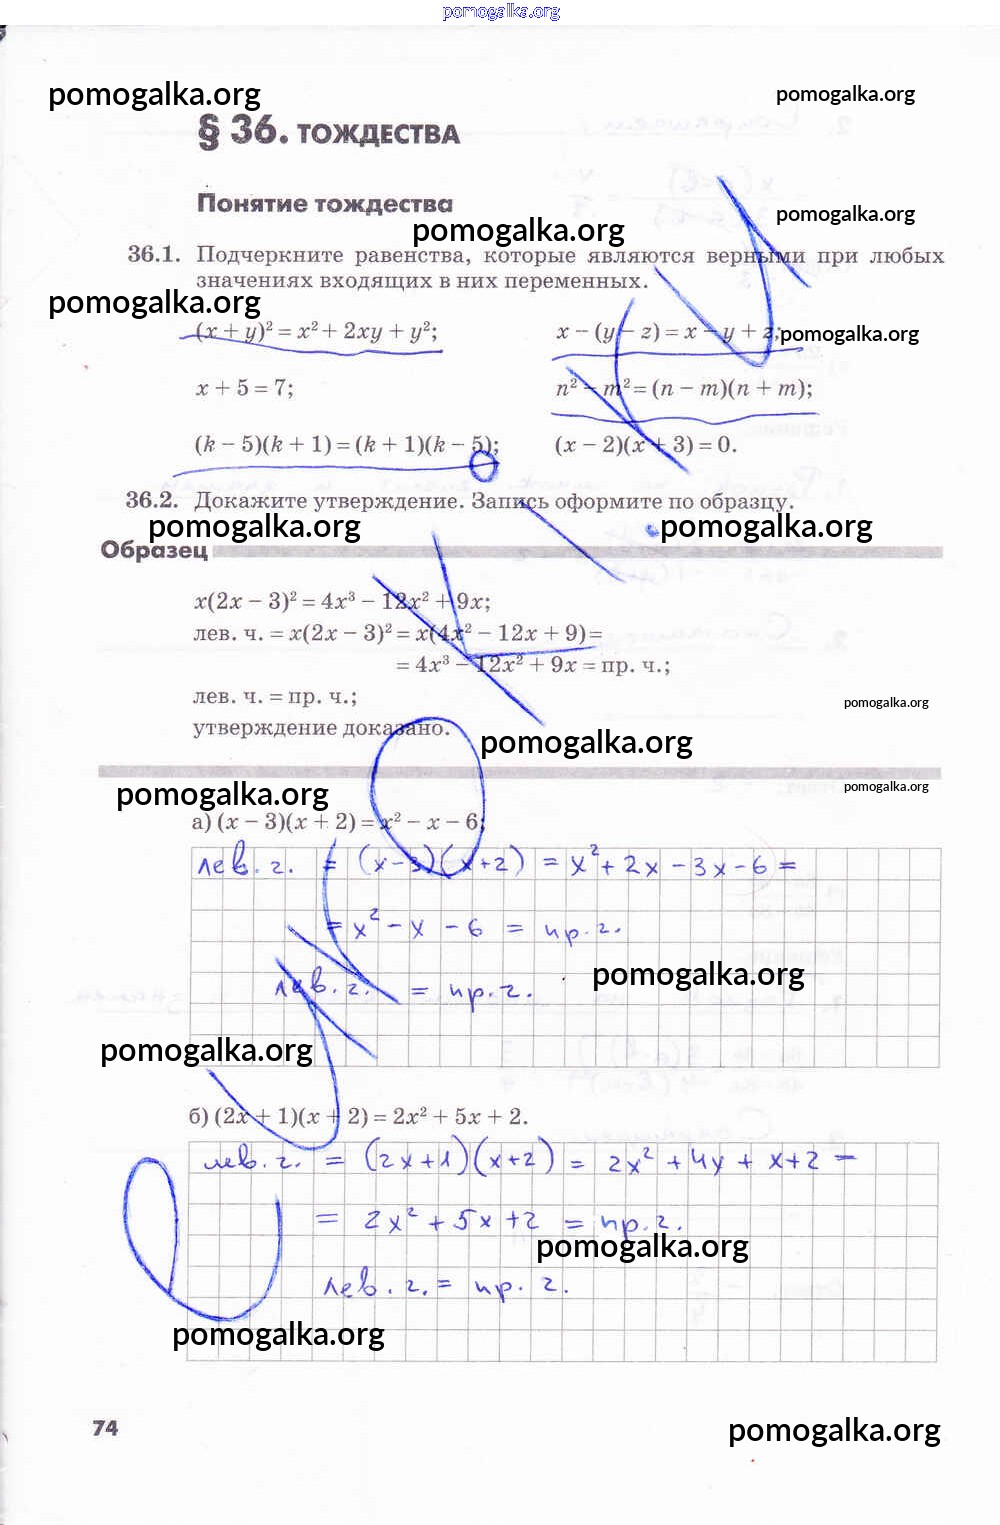 pomogalka.org
pomogalka.org
pomogalka.org
§ 36. ТОЖДЕСТВА
Понятие тождества
pomogalka.org
pomogalka.org
36.1. Подчеркните равенства, которые являются верными при любых
значениях входящих в них переменных.
pomogalka.org
(x + y)² = x² + 2xy + y²; x − (y − z) = x − y + z;
pomogalka.org
x + 5 = 7; n² − m² = (n − m)(n + m);
(k − 5)(k + 1) = (k + 1)(k − 5); (x − 2)(x + 3) = 0.
36.2. Докажите утверждение. Запись оформите по образцу.
pomogalka.org pomogalka.org
Образец
x(2x − 3)² = 4x³ − 12x² + 9x;
лев. ч. = x(2x − 3)² = x(4x² − 12x + 9) =
= 4x³ − 12x² + 9x = пр. ч.;
лев. ч. = пр. ч.;
pomogalka.org
утверждение доказано.
pomogalka.org
pomogalka.org
pomogalka.org
а) (x − 3)(x + 2) = x² − x − 6;
лев. ч. = (x−3)(x+2) = x² + 2x − 3x − 6 =
= x² − x − 6 = пр. ч.
pomogalka.org
лев. ч. = пр. ч.
pomogalka.org
б) (2x + 1)(x + 2) = 2x² + 5x + 2.
лев. ч. = (2x+1)(x+2) = 2x² + 4x + x + 2 =
= 2x² + 5x + 2 = пр. ч.
pomogalka.org
лев. ч. = пр. ч.
pomogalka.org
74
pomogalka.org